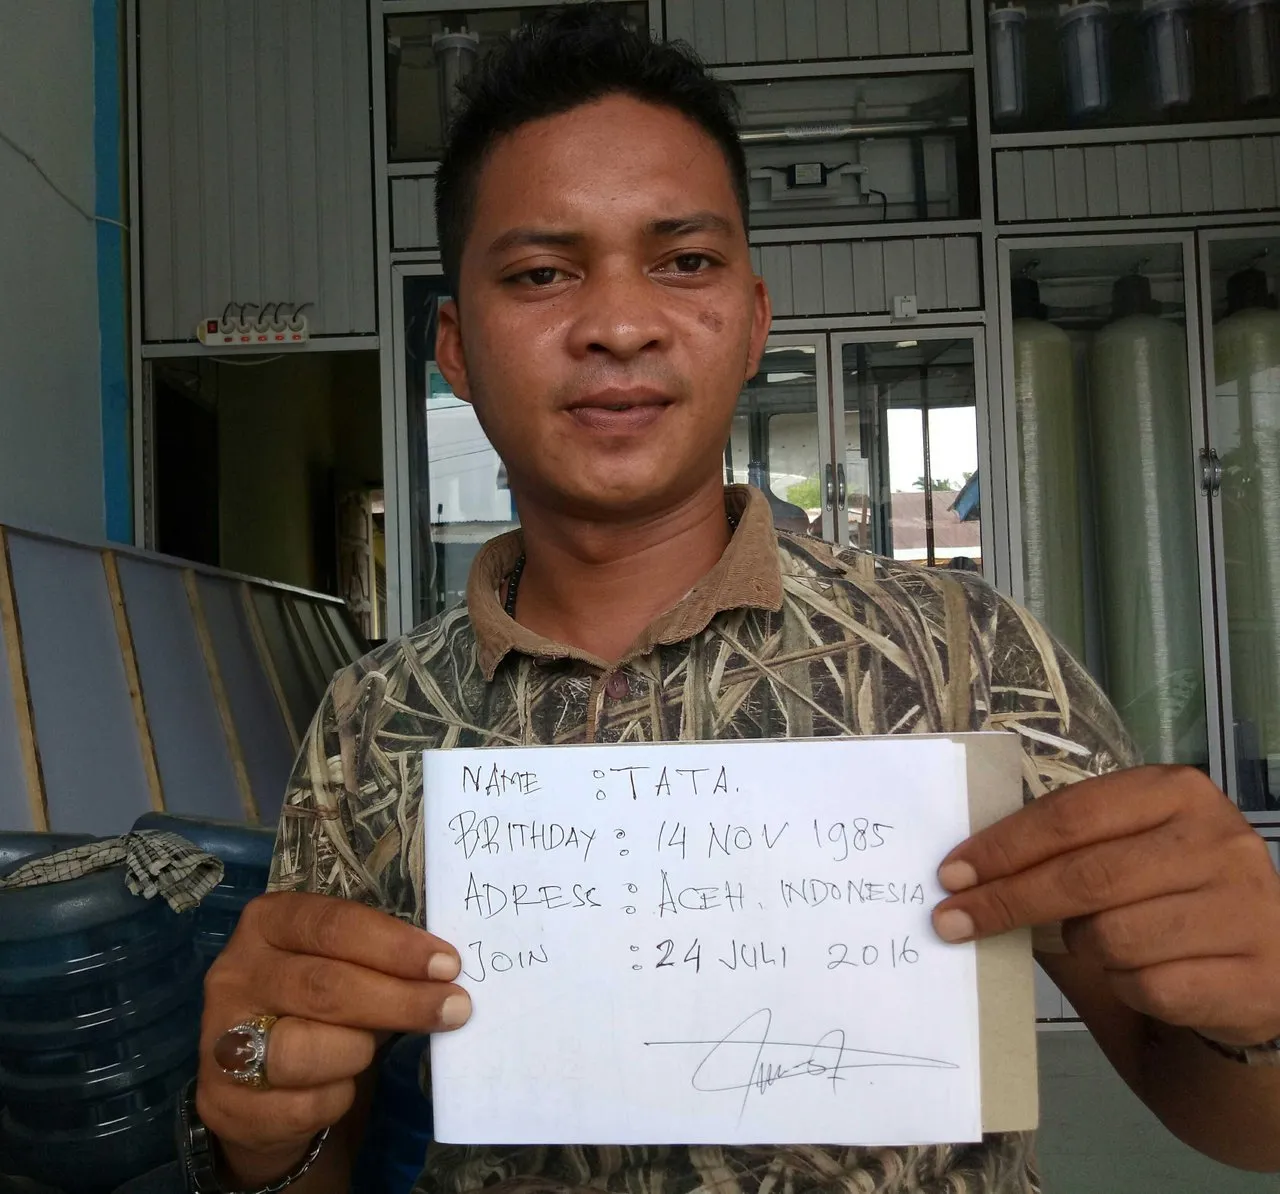 NAME : TATA.
BRITHDAY : 14 NOV 1985
ADRESS : ACEH. INDONESIA
JOIN : 24 JULI 2016